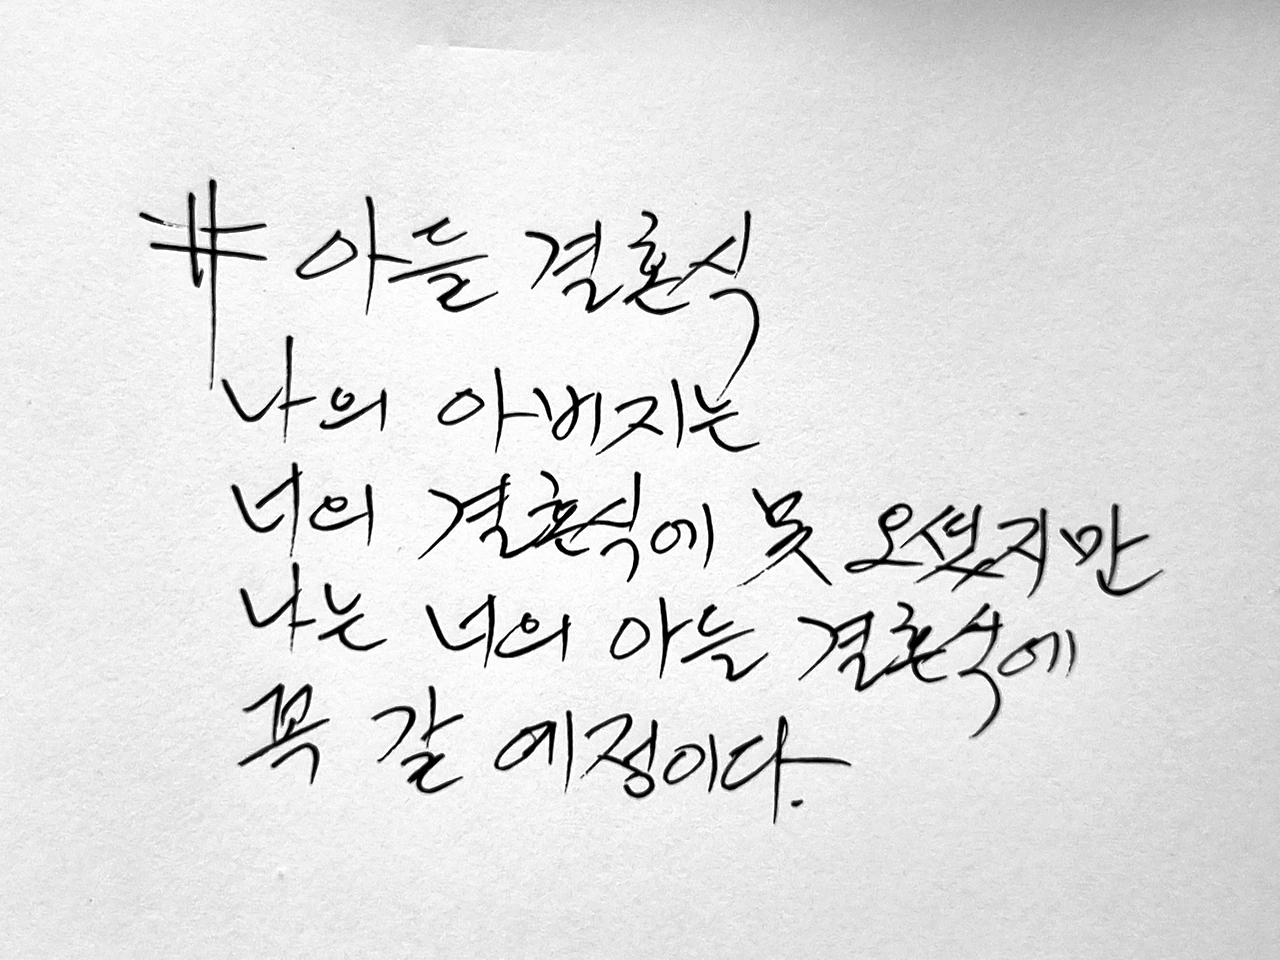 # 아들 결혼식
나의 아버지는
너의 결혼식에 못 오셨지만
나는 너의 아들 결혼식에
꼭 갈 예정이다.